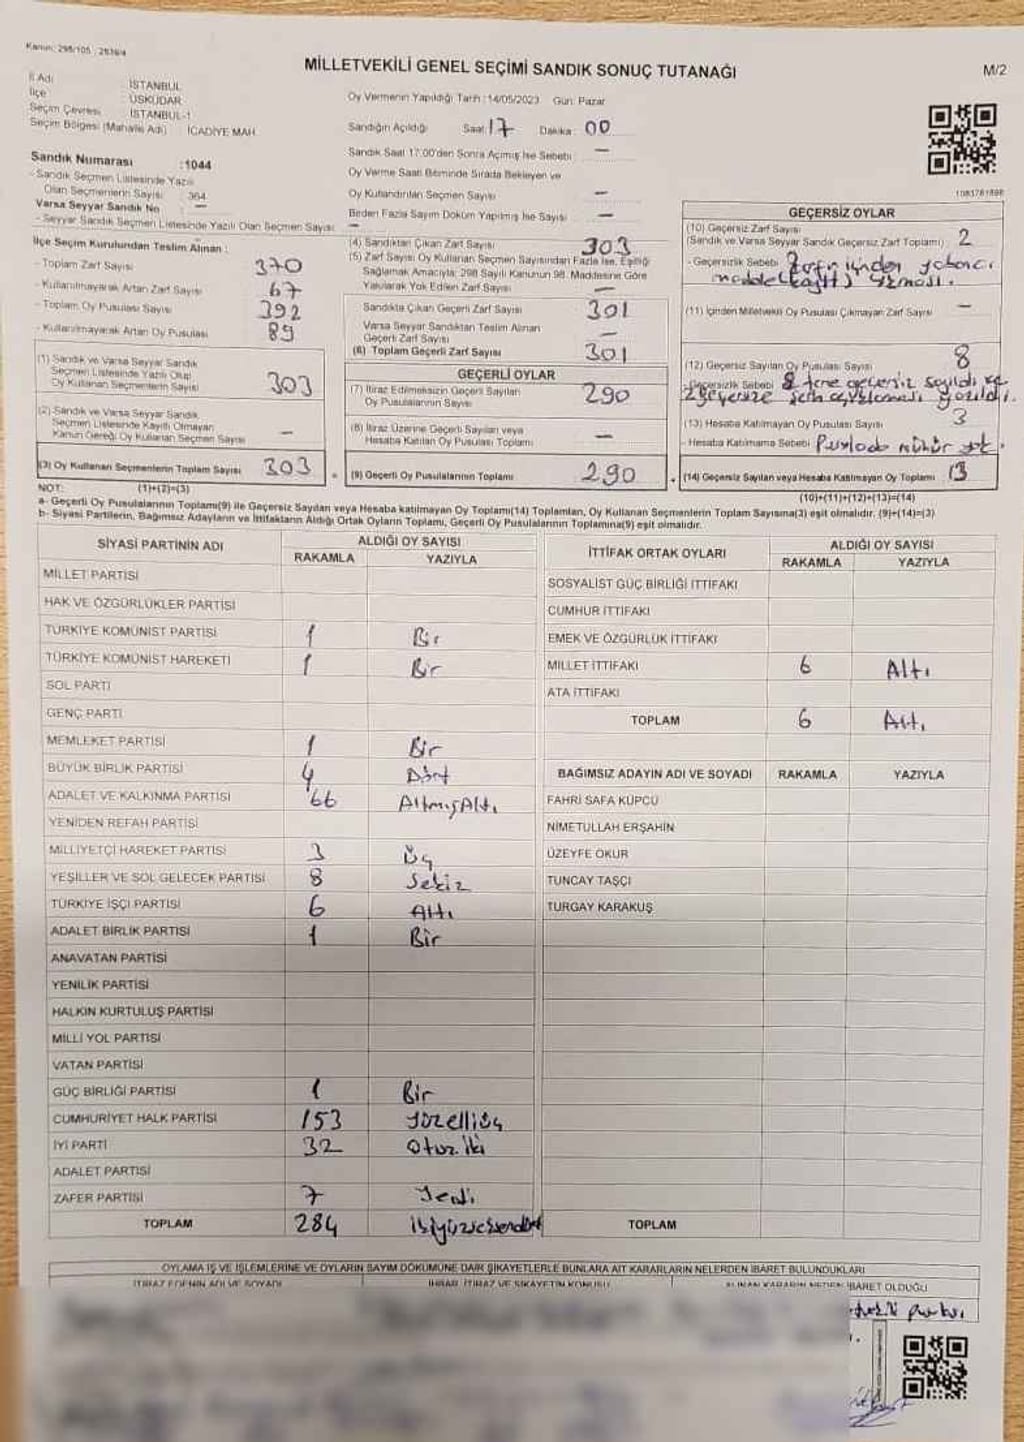 Kanun: 298/105 , 2839/4
MİLLETVEKİLİ GENEL SEÇİMİ SANDIK SONUÇ TUTANAĞI
M/2
İl Adı : İSTANBUL
İlçe : ÜSKÜDAR
Seçim Çevresi : İSTANBUL-1
Seçim Bölgesi (Mahalle Adı) : İCADİYE MAH.
Sandık Numarası :1044
- Sandık Seçmen Listesinde Yazılı
Olan Seçmenlerin Sayısı : 364
Varsa Seyyar Sandık No : —
- Seyyar Sandık Seçmen Listesinde Yazılı Olan Seçmen Sayısı : —
Oy Vermenin Yapıldığı Tarih :14/05/2023 Gün: Pazar
Sandığın Açıldığı Saat: 17 Dakika: 00
Sandık Saat 17.00'den Sonra Açılmış İse Sebebi : —
Oy Verme Saati Bitiminde Sırada Bekleyen ve
Oy Kullandırılan Seçmen Sayısı —
Birden Fazla Sayım Döküm Yapılmış İse Sayısı —
1083761898
İlçe Seçim Kurulundan Teslim Alınan :
- Toplam Zarf Sayısı 370
- Kullanılmayarak Artan Zarf Sayısı 67
- Toplam Oy Pusulası Sayısı 392
- Kullanılmayarak Artan Oy Pusulası 89
(1) Sandık ve Varsa Seyyar Sandık
Seçmen Listesinde Yazılı Olup
Oy Kullanan Seçmenlerin Sayısı 303
(2) Sandık ve Varsa Seyyar Sandık
Seçmen Listesinde Kayıtlı Olmayan
Kanun Gereği Oy Kullanan Seçmen Sayısı —
(3) Oy Kullanan Seçmenlerin Toplam Sayısı 303
(1)+(2)=(3)
(4) Sandıktan Çıkan Zarf Sayısı 303
(5) Zarf Sayısı Oy Kullanan Seçmen Sayısından Fazla İse, Eşitliği
Sağlamak Amacıyla; 298 Sayılı Kanunun 98. Maddesine Göre
Yakılarak Yok Edilen Zarf Sayısı —
Sandıkta Çıkan Geçerli Zarf Sayısı 301
Varsa Seyyar Sandıktan Teslim Alınan
Geçerli Zarf Sayısı —
(6) Toplam Geçerli Zarf Sayısı 301
GEÇERLİ OYLAR
(7) İtiraz Edilmeksizin Geçerli Sayılan
Oy Pusulalarının Sayısı 290
(8) İtiraz Üzerine Geçerli Sayılan veya
Hesaba Katılan Oy Pusulası Toplamı —
(9) Geçerli Oy Pusulalarının Toplamı 290
GEÇERSİZ OYLAR
(10) Geçersiz Zarf Sayısı
(Sandık ve Varsa Seyyar Sandık Geçersiz Zarf Toplamı) : 2
- Geçersizlik Sebebi : Zarfın içinden yabancı
madde(kağıt) çıkması.
(11) İçinden Milletvekili Oy Pusulası Çıkmayan Zarf Sayısı —
(12) Geçersiz Sayılan Oy Pusulası Sayısı 8
- Geçersizlik Sebebi 8 tane geçersiz sayıldı ve
geçersize açıklaması yazıldı.
(13) Hesaba Katılmayan Oy Pusulası Sayısı 3
- Hesaba Katılmama Sebebi mühür yok.
(14) Geçersiz Sayılan veya Hesaba Katılmayan Oy Toplamı 13
(10)+(11)+(12)+(13)=(14)
NOT:
a- Geçerli Oy Pusulalarının Toplamı(9) ile Geçersiz Sayılan veya Hesaba katılmayan Oy Toplamı(14) Toplamları, Oy Kullanan Seçmenlerin Toplam Sayısına(3) eşit olmalıdır. (9)+(14)=(3)
b- Siyasi Partilerin, Bağımsız Adayların ve İttifakların Aldığı Ortak Oyların Toplamı, Geçerli Oy Pusulalarının Toplamına(9) eşit olmalıdır.
SİYASİ PARTİNİN ADI ALDIĞI OY SAYISI
RAKAMLA YAZIYLA
MİLLET PARTİSİ
HAK VE ÖZGÜRLÜKLER PARTİSİ
TÜRKİYE KOMÜNİST PARTİSİ 1 Bir
TÜRKİYE KOMÜNİST HAREKETİ 1 Bir
SOL PARTİ
GENÇ PARTİ
MEMLEKET PARTİSİ 1 Bir
BÜYÜK BİRLİK PARTİSİ 4 Dört
ADALET VE KALKINMA PARTİSİ 66 AltmışAltı
YENİDEN REFAH PARTİSİ
MİLLİYETÇİ HAREKET PARTİSİ 3 Üç
YEŞİLLER VE SOL GELECEK PARTİSİ 8 Sekiz
TÜRKİYE İŞÇİ PARTİSİ 6 Altı
ADALET BİRLİK PARTİSİ 1 Bir
ANAVATAN PARTİSİ
YENİLİK PARTİSİ
HALKIN KURTULUŞ PARTİSİ
MİLLİ YOL PARTİSİ
VATAN PARTİSİ
GÜÇ BİRLİĞİ PARTİSİ 1 Bir
CUMHURİYET HALK PARTİSİ 153 yüzelliüç
İYİ PARTİ 32 otuziki
ADALET PARTİSİ
ZAFER PARTİSİ 7 Yedi
TOPLAM 284 ikiyüzseksendört
İTTİFAK ORTAK OYLARI ALDIĞI OY SAYISI
RAKAMLA YAZIYLA
SOSYALİST GÜÇ BİRLİĞİ İTTİFAKI
CUMHUR İTTİFAKI
EMEK VE ÖZGÜRLÜK İTTİFAKI
MİLLET İTTİFAKI 6 Altı
ATA İTTİFAKI
TOPLAM 6 Altı
BAĞIMSIZ ADAYIN ADI VE SOYADI RAKAMLA YAZIYLA
FAHRİ SAFA KÜPCÜ
NİMETULLAH ERŞAHİN
ÜZEYFE OKUR
TUNCAY TAŞÇI
TURGAY KARAKUŞ
TOPLAM
OYLAMA İŞ VE İŞLEMLERİNE VE OYLARIN SAYIM DÖKÜMÜNE DAİR ŞİKAYETLERLE BUNLARA AİT KARARLARIN NELERDEN İBARET BULUNDUKLARI
İTİRAZ EDENİN ADI VE SOYADI İHBAR, İTİRAZ VE ŞİKAYETİN KONUSU ALINAN KARARIN NEDEN İBARET OLDUĞU